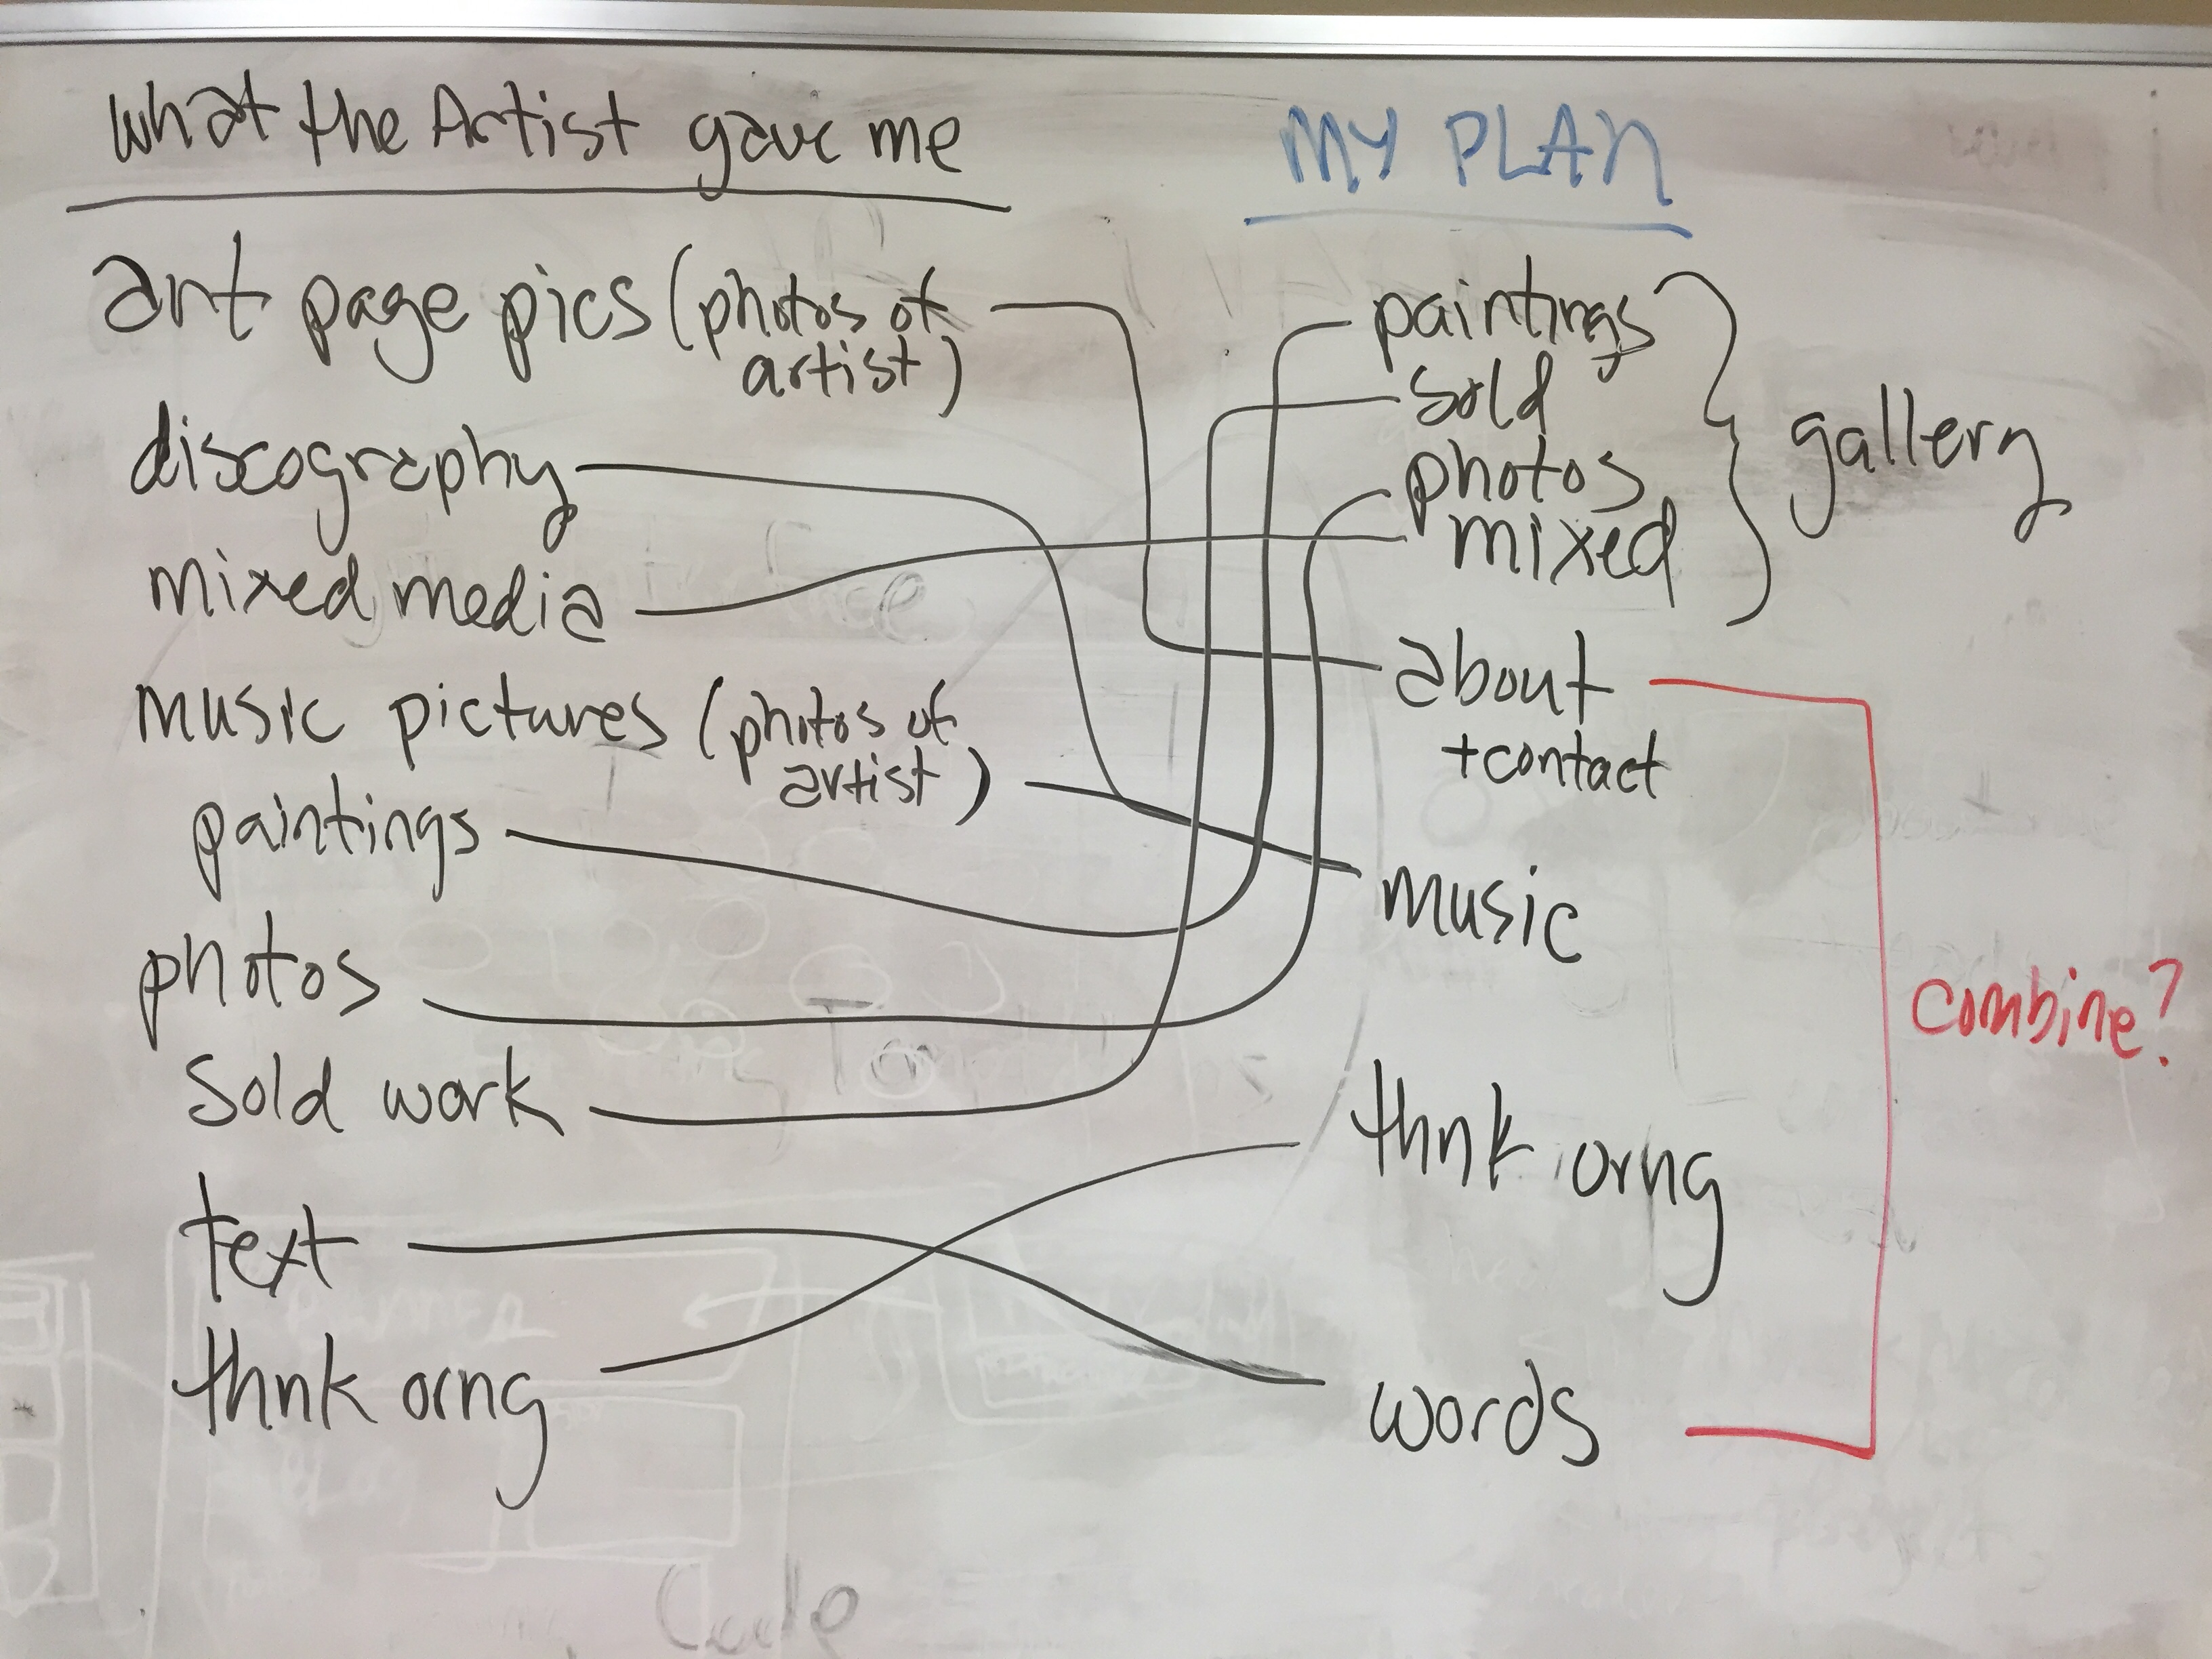 What the Artist gave me
art page pics (photos of
artist)
discography
mixed media
music pictures (photos of
artist)
paintings
photos
sold work
text
thnk orng
MY PLAN
paintings
sold
photos
mixed
gallery
about
+contact
music
thnk orng
words
combine?
Code